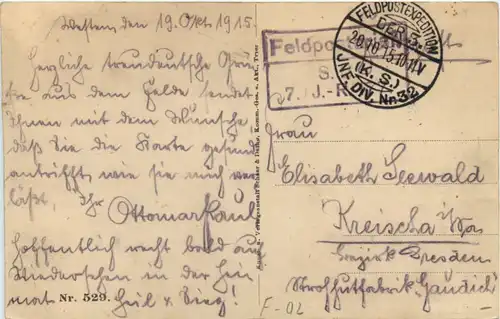 Westen, den 19. Okt. 1915.
Herzliche treudeutsche Grüße
aus dem Felde sendet
Ihnen mit dem Wunsche
daß Sie die Karte gesund
antrifft, wie sie mich ver
läßt, Ihr Ottomar Paul
Hoffentlich recht bald auf
Wiedersehen in der Hei
mat Heil & Sieg!
Nr. 529.
FELDPOSTEXPEDITION
DER 3.
20.10.15.10-11.V
(K.S.)
INF. DIV. No 32
Feldpos
S.
7. J.-R
Frau
Elisabeth Seewald
Kreischa i/Sa
Bezirk Dresden
Strohhutfabrik Gaudich
F-02